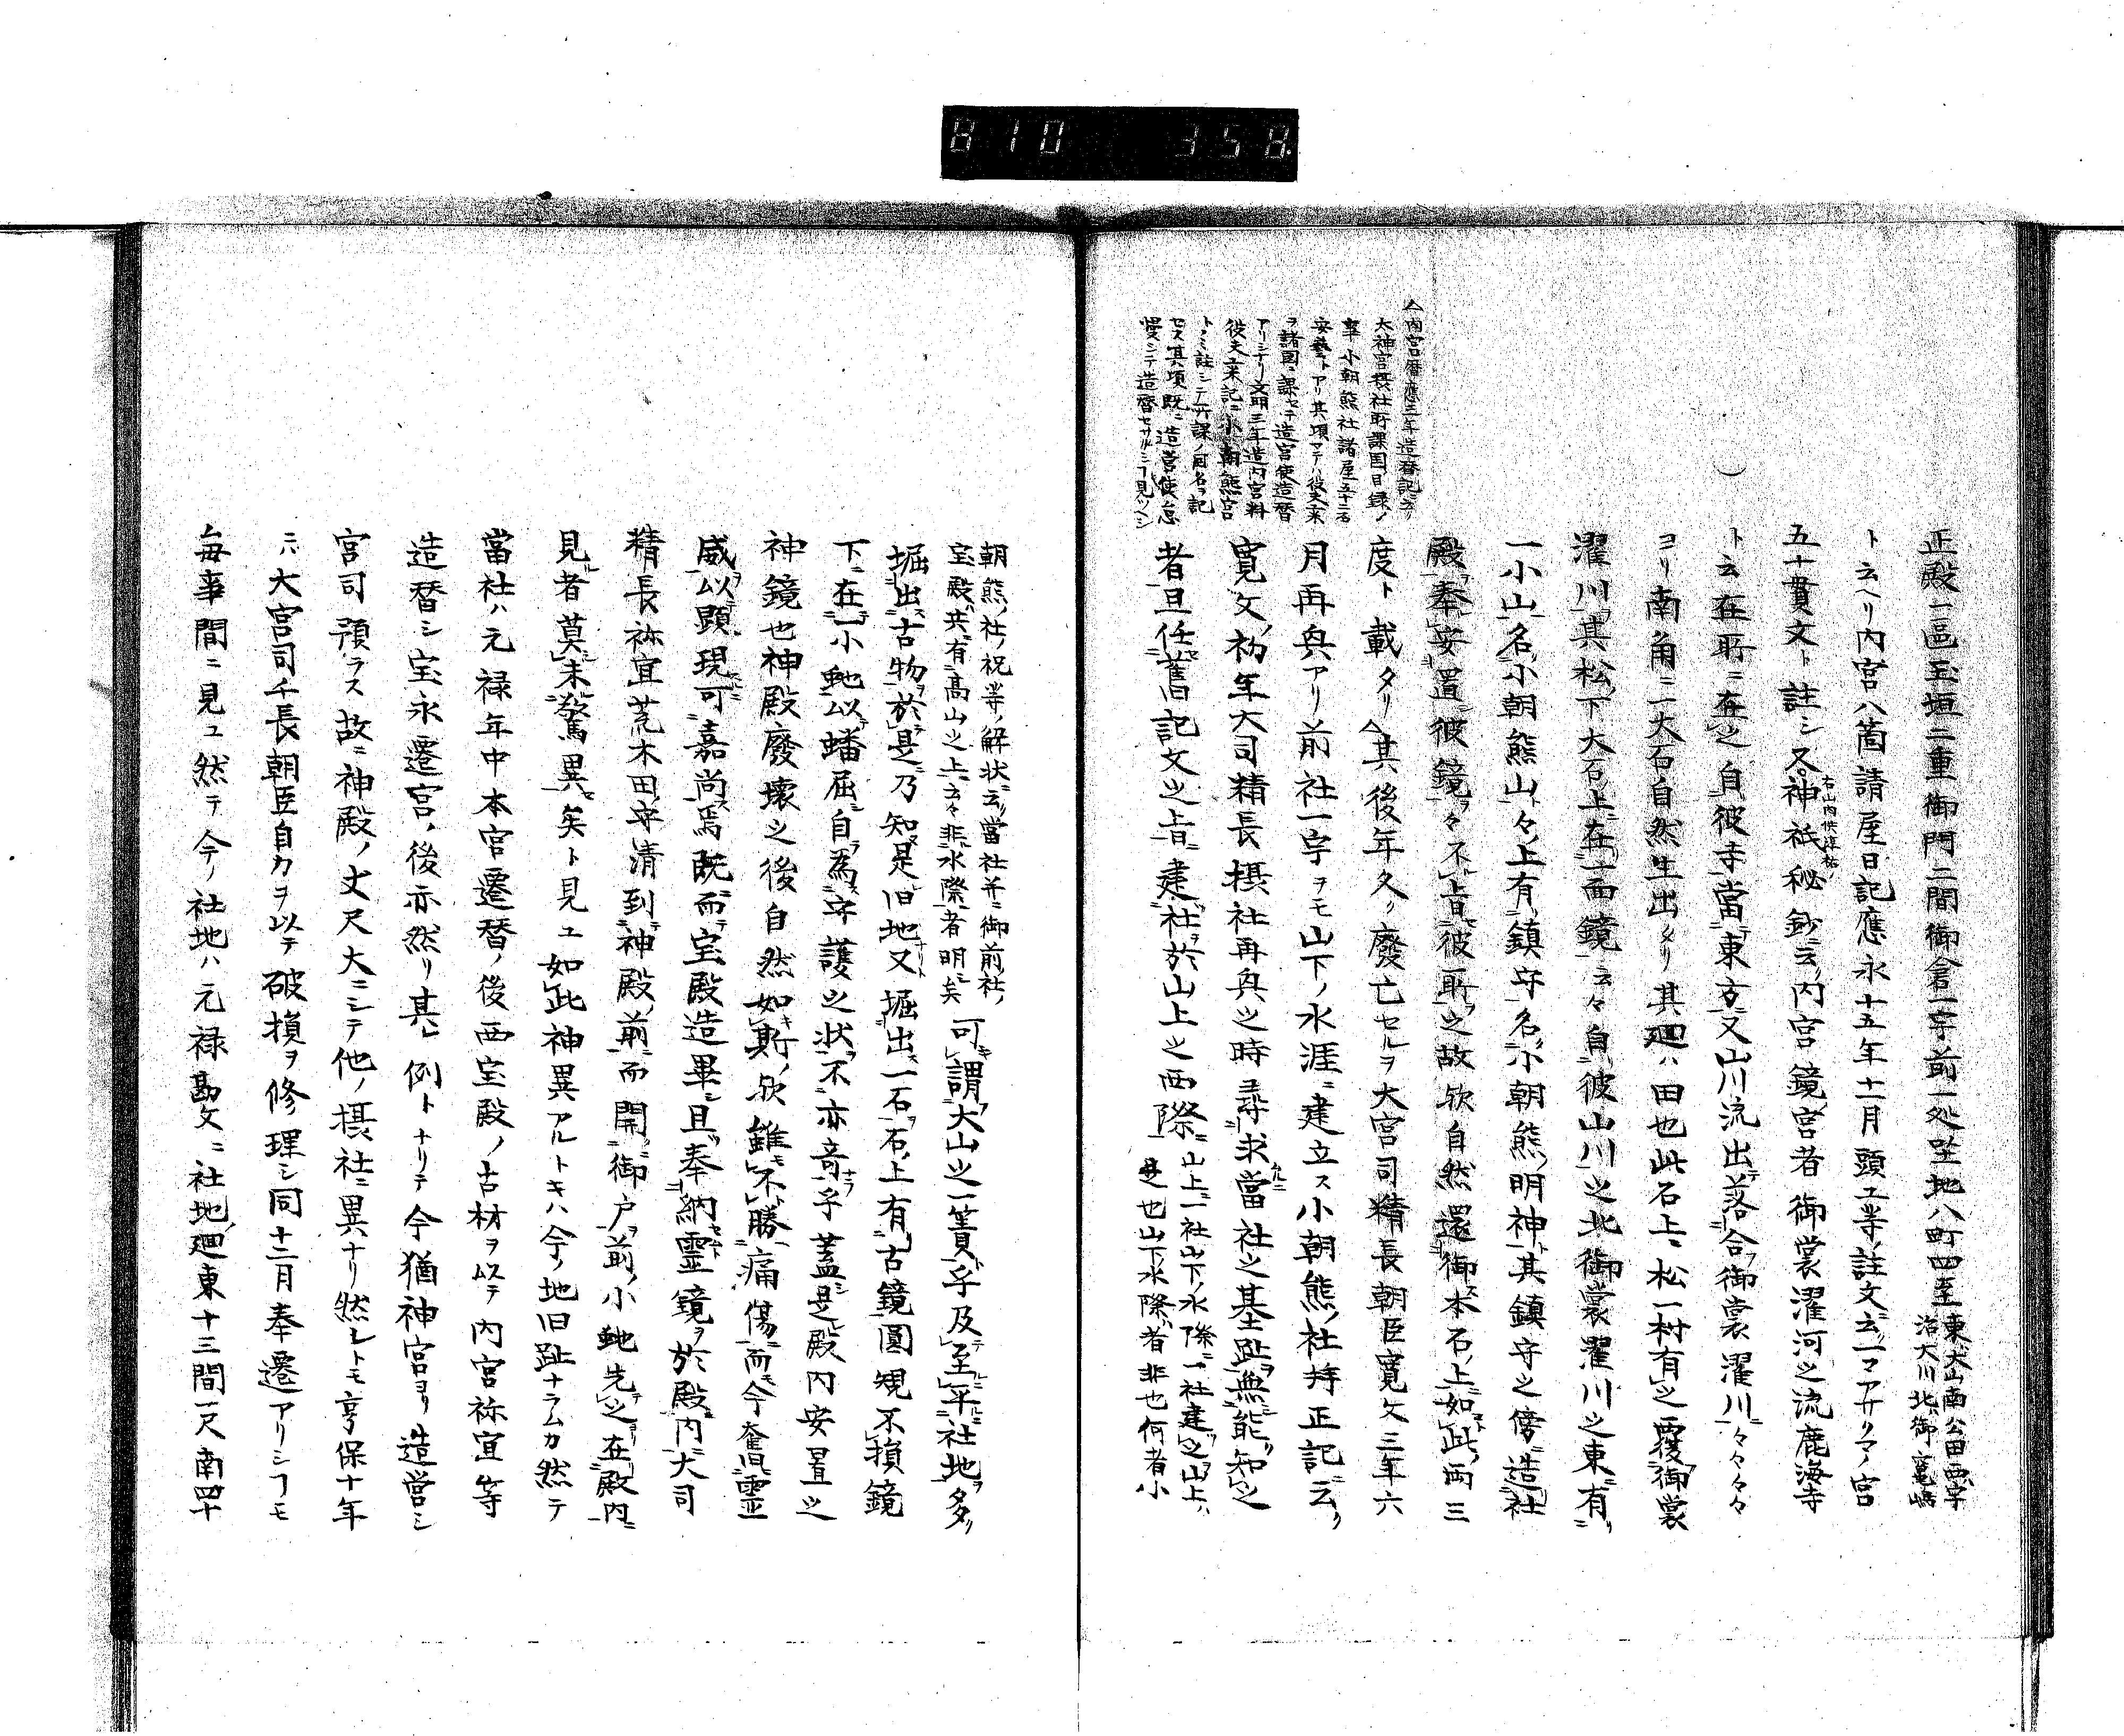 810 358
正殿一區玉垣二重御門二間御倉一宇前一处坐地八町四至東大山南公田西寺
沼大川北御竃嶋
ト云ヘリ内宮八箇請屋日記應永十五年十一月頭工等註文云マアサクマノ宮
五十貫文ト註シ又神祇秘鈔云内宮鏡宮者御裳濯河之流鹿海寺
ト云在所ニ在之自彼寺當東方又山川流出落合御裳濯川々々々々
ヨリ南角ニ一大石自然生出タリ其廻ハ田也此石上松一村有之覆御裳
濯川其松下大石上在一面鏡云々自彼山川之北御裳濯川之東有
一小山名小朝熊山々上有鎮守名小朝熊明神其鎮守之傍造社
殿奉安置彼鏡々不旨彼所之故欤自然還御本石上如此両三
度ト載タリ其後年久ク廢亡セルヲ大宮司精長朝臣寛文三年六
月再興アリ前社一宇ヲモ山下ノ水涯ニ建立ス小朝熊社拝正記云
寛文初年大司精長摂社再興之時尋求當社之基趾無能知之
者且任舊記文之旨建社於山上之西際山上一社山下ノ水際一社建之山上ハ
是也山下水際者非也何者小
内宮暦應三年造替記云
大神宮摂社所課国目録ノ
率小朝熊社諸屋五十二石
安藝トアリ其項マテハ役夫米
ヲ諸国ニ課セテ造宮使造替
アリシナリ文明三年造内宮料
役夫米記ニ小朝熊宮
トノミ註シテ所課ノ国名ヲ記
セス其項既ニ造営使怠
慢シテ造替セサルシ𬼀見ツヘシ
朝熊ノ社ノ祝等ノ解状云當社并ニ御前社ノ
宝殿共有高山之上云々非水際者明矣
可謂大山之一簣乎及至平社地多
堀出古物於是乃知是旧地又堀出一石石上有古鏡圓規不損鏡
下在一小虵以蟠屈自為守護之状不亦奇乎蓋是殿内安置之
神鏡也神殿廢壊之後自然如斯欤雖不勝痛傷而今奮霊
威以顕現可嘉尚焉既而宝殿造畢且奉納霊鏡於殿内大司
精長祢宜荒木田守清到神殿前而開御戸前小虵先之在殿内
見者莫未驚異矣ト見ユ如此神異アルトキハ今ノ地旧趾ナラムカ然テ
當社ハ元禄年中本宮遷替ノ後西宝殿ノ古材ヲ以テ内宮祢宜等
造替シ宝永遷宮ノ後亦然リ其レ例トナリテ今猶神宮ヨリ造営シ
宮司預ラス故ニ神殿ノ丈尺大ニシテ他ノ摂社ニ異ナリ然レトモ享保十年
ニハ大宮司千長朝臣自力ヲ以テ破損ヲ修理シ同十二月奉遷アリシ𬼀モ
毎事間ニ見ユ然テ今ノ社地ハ元禄勘文ニ社地廻東十三間一尺南四十